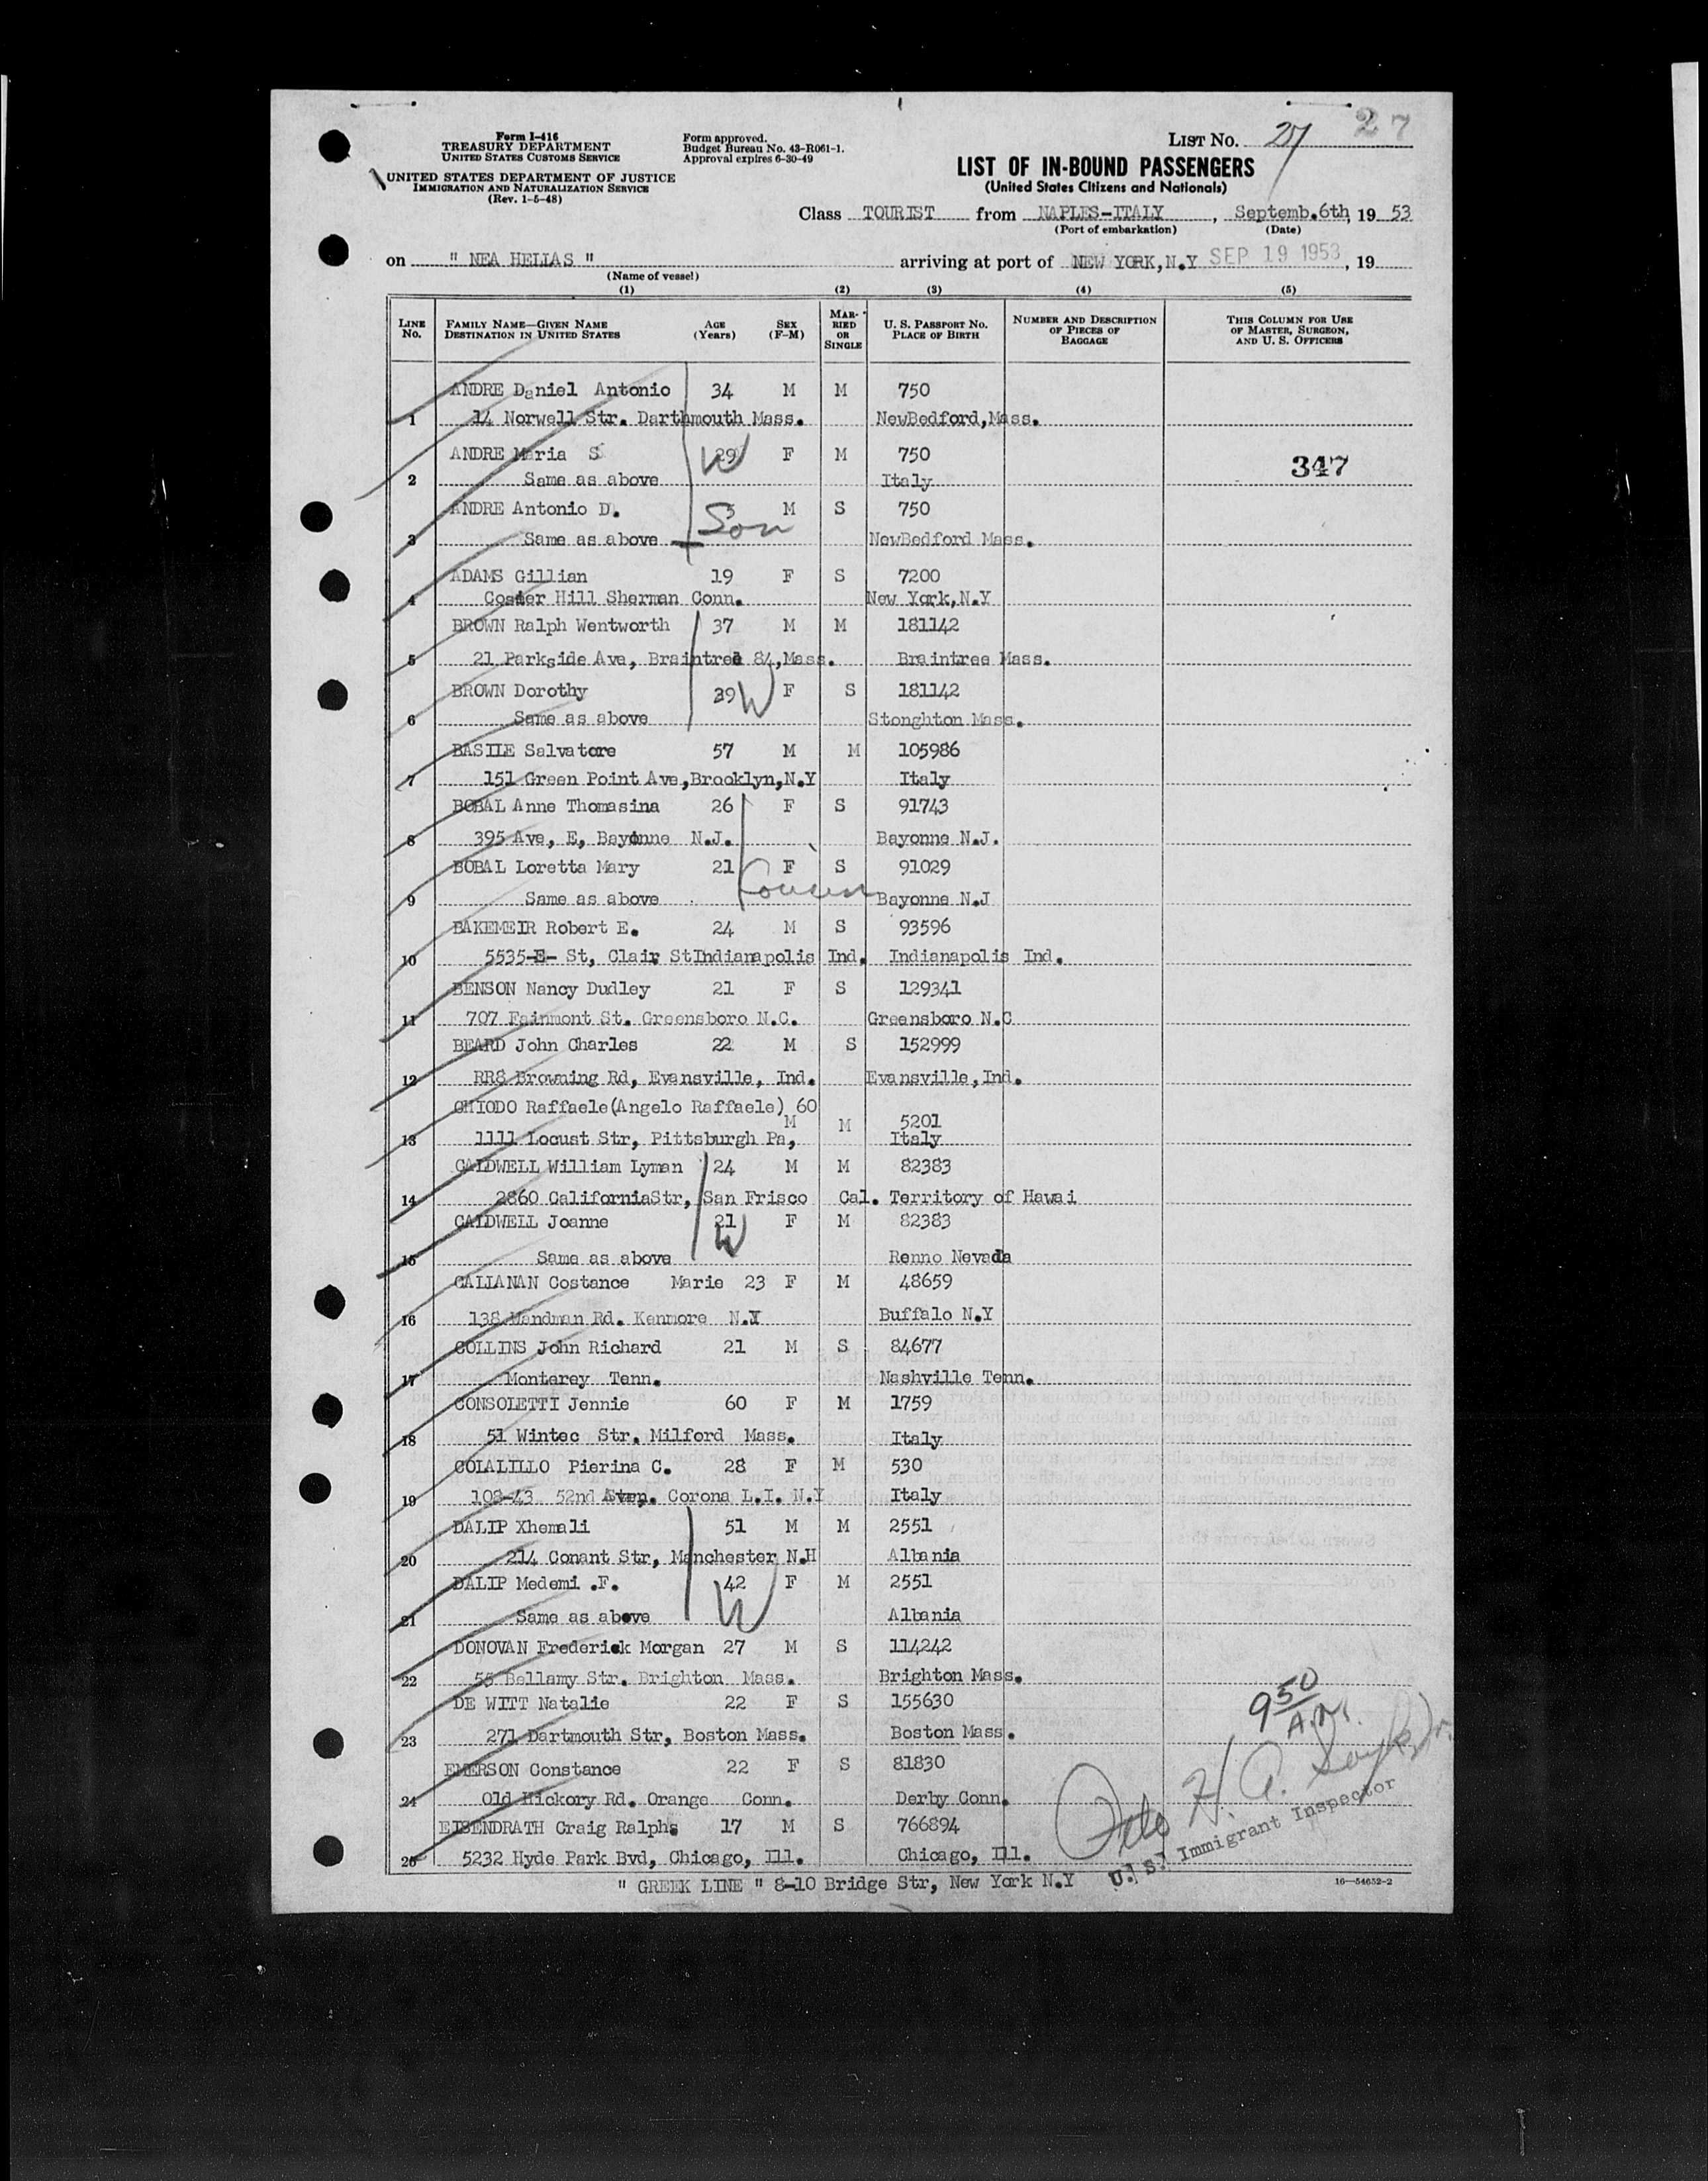 Form I-416
TREASURY DEPARTMENT
UNITED STATES CUSTOMS SERVICE
UNITED STATES DEPARTMENT OF JUSTICE
IMMIGRATION AND NATURALIZATION SERVICE
(Rev. 1-5-48)
Form approved.
Budget Bureau No. 43-R061-1.
Approval expires 6-30-49
LIST NO. 27 27
LIST OF IN-BOUND PASSENGERS
(United States Citizens and Nationals)
Class TOURIST from NAPLES-ITALY, Septemb.6th, 19 53
(Port of embarkation) (Date)
on " NEA HELLAS " arriving at port of NEW YORK,N.Y SEP 19 1953, 19
(Name of vessel)
(1) (2) (3) (4) (5)
LINE NO. FAMILY NAME—GIVEN NAME DESTINATION IN UNITED STATES AGE (Years) SEX (F-M) MARRIED OR SINGLE U. S. PASSPORT NO. PLACE OF BIRTH NUMBER AND DESCRIPTION OF PIECES OF BAGGAGE THIS COLUMN FOR USE OF MASTER, SURGEON, AND U. S. OFFICERS
ANDRE Daniel Antonio 34 M M 750
1 14 Norwell Str. Darthmouth Mass. NewBedford,Mass.
ANDRE Maria S 29 W F M 750 347
2 Same as above Italy
ANDRE Antonio D. Son M S 750
3 Same as above NewBedford Mass.
ADAMS Gillian 19 F S 7200
4 Coster Hill Sherman Conn. New York,N.Y
BROWN Ralph Wentworth 37 M M 181142
5 21 Parkside Ave, Braintree 84,Mass. Braintree Mass.
BROWN Dorothy 39 W F S 181142
6 Same as above Stonghton Mass.
BASILE Salvatore 57 M M 105986
7 151 Green Point Ave,Brooklyn,N.Y Italy
BOBAL Anne Thomasina 26 F S 91743
8 395 Ave, E, Bayonne N.J. Bayonne N.J.
BOBAL Loretta Mary 21 F S 91029
9 Same as above Cousin Bayonne N.J
BAKEMEIR Robert E. 24 M S 93596
10 5535-E- St, Clair StIndianapolis Ind. Indianapolis Ind.
BENSON Nancy Dudley 21 F S 129341
11 707 Fainmont St. Greensboro N.C. Greensboro N.C
BEARD John Charles 22 M S 152999
12 RR8 Browning Rd, Evansville, Ind. Evansville,Ind.
CHIODO Raffaele(Angelo Raffaele) 60 M M 5201
13 1111 Locust Str, Pittsburgh Pa, Italy
CALDWELL William Lyman 24 M M 82383
14 2860 CaliforniaStr, San Frisco Cal. Territory of Hawai
CALDWELL Joanne 21 W F M 82383
15 Same as above Renno Nevada
CALLANAN Costance Marie 23 F M 48659
16 138 Wandman Rd. Kenmore N.Y Buffalo N.Y
COLLINS John Richard 21 M S 84677
17 Monterey Tenn. Nashville Tenn.
CONSOLETTI Jennie 60 F M 1759
18 51 Wintec Str. Milford Mass. Italy
COLALILLO Pierina C. 28 F M 530
19 108-43 52nd Corona L.I. N.Y Italy
DALIP Xhemali 51 M M 2551
20 214 Conant Str, Manchester N.H Albania
DALIP Medemi .F. 42 W F M 2551
21 Same as above Albania
DONOVAN Frederick Morgan 27 M S 114242
22 55 Bellamy Str. Brighton Mass. Brighton Mass.
DE WITT Natalie 22 F S 155630
23 271 Dartmouth Str, Boston Mass. Boston Mass.
EMERSON Constance 22 F S 81830
24 Old Hickory Rd. Orange Conn. Derby Conn.
EISENDRATH Craig Ralphs 17 M S 766894
25 5232 Hyde Park Bvd, Chicago, Ill. Chicago, Ill.
9 50 A.M.
Otto H. A.
U. S. Immigrant Inspector
" GREEK LINE " 8-10 Bridge Str, New York N.Y
16—54652-2